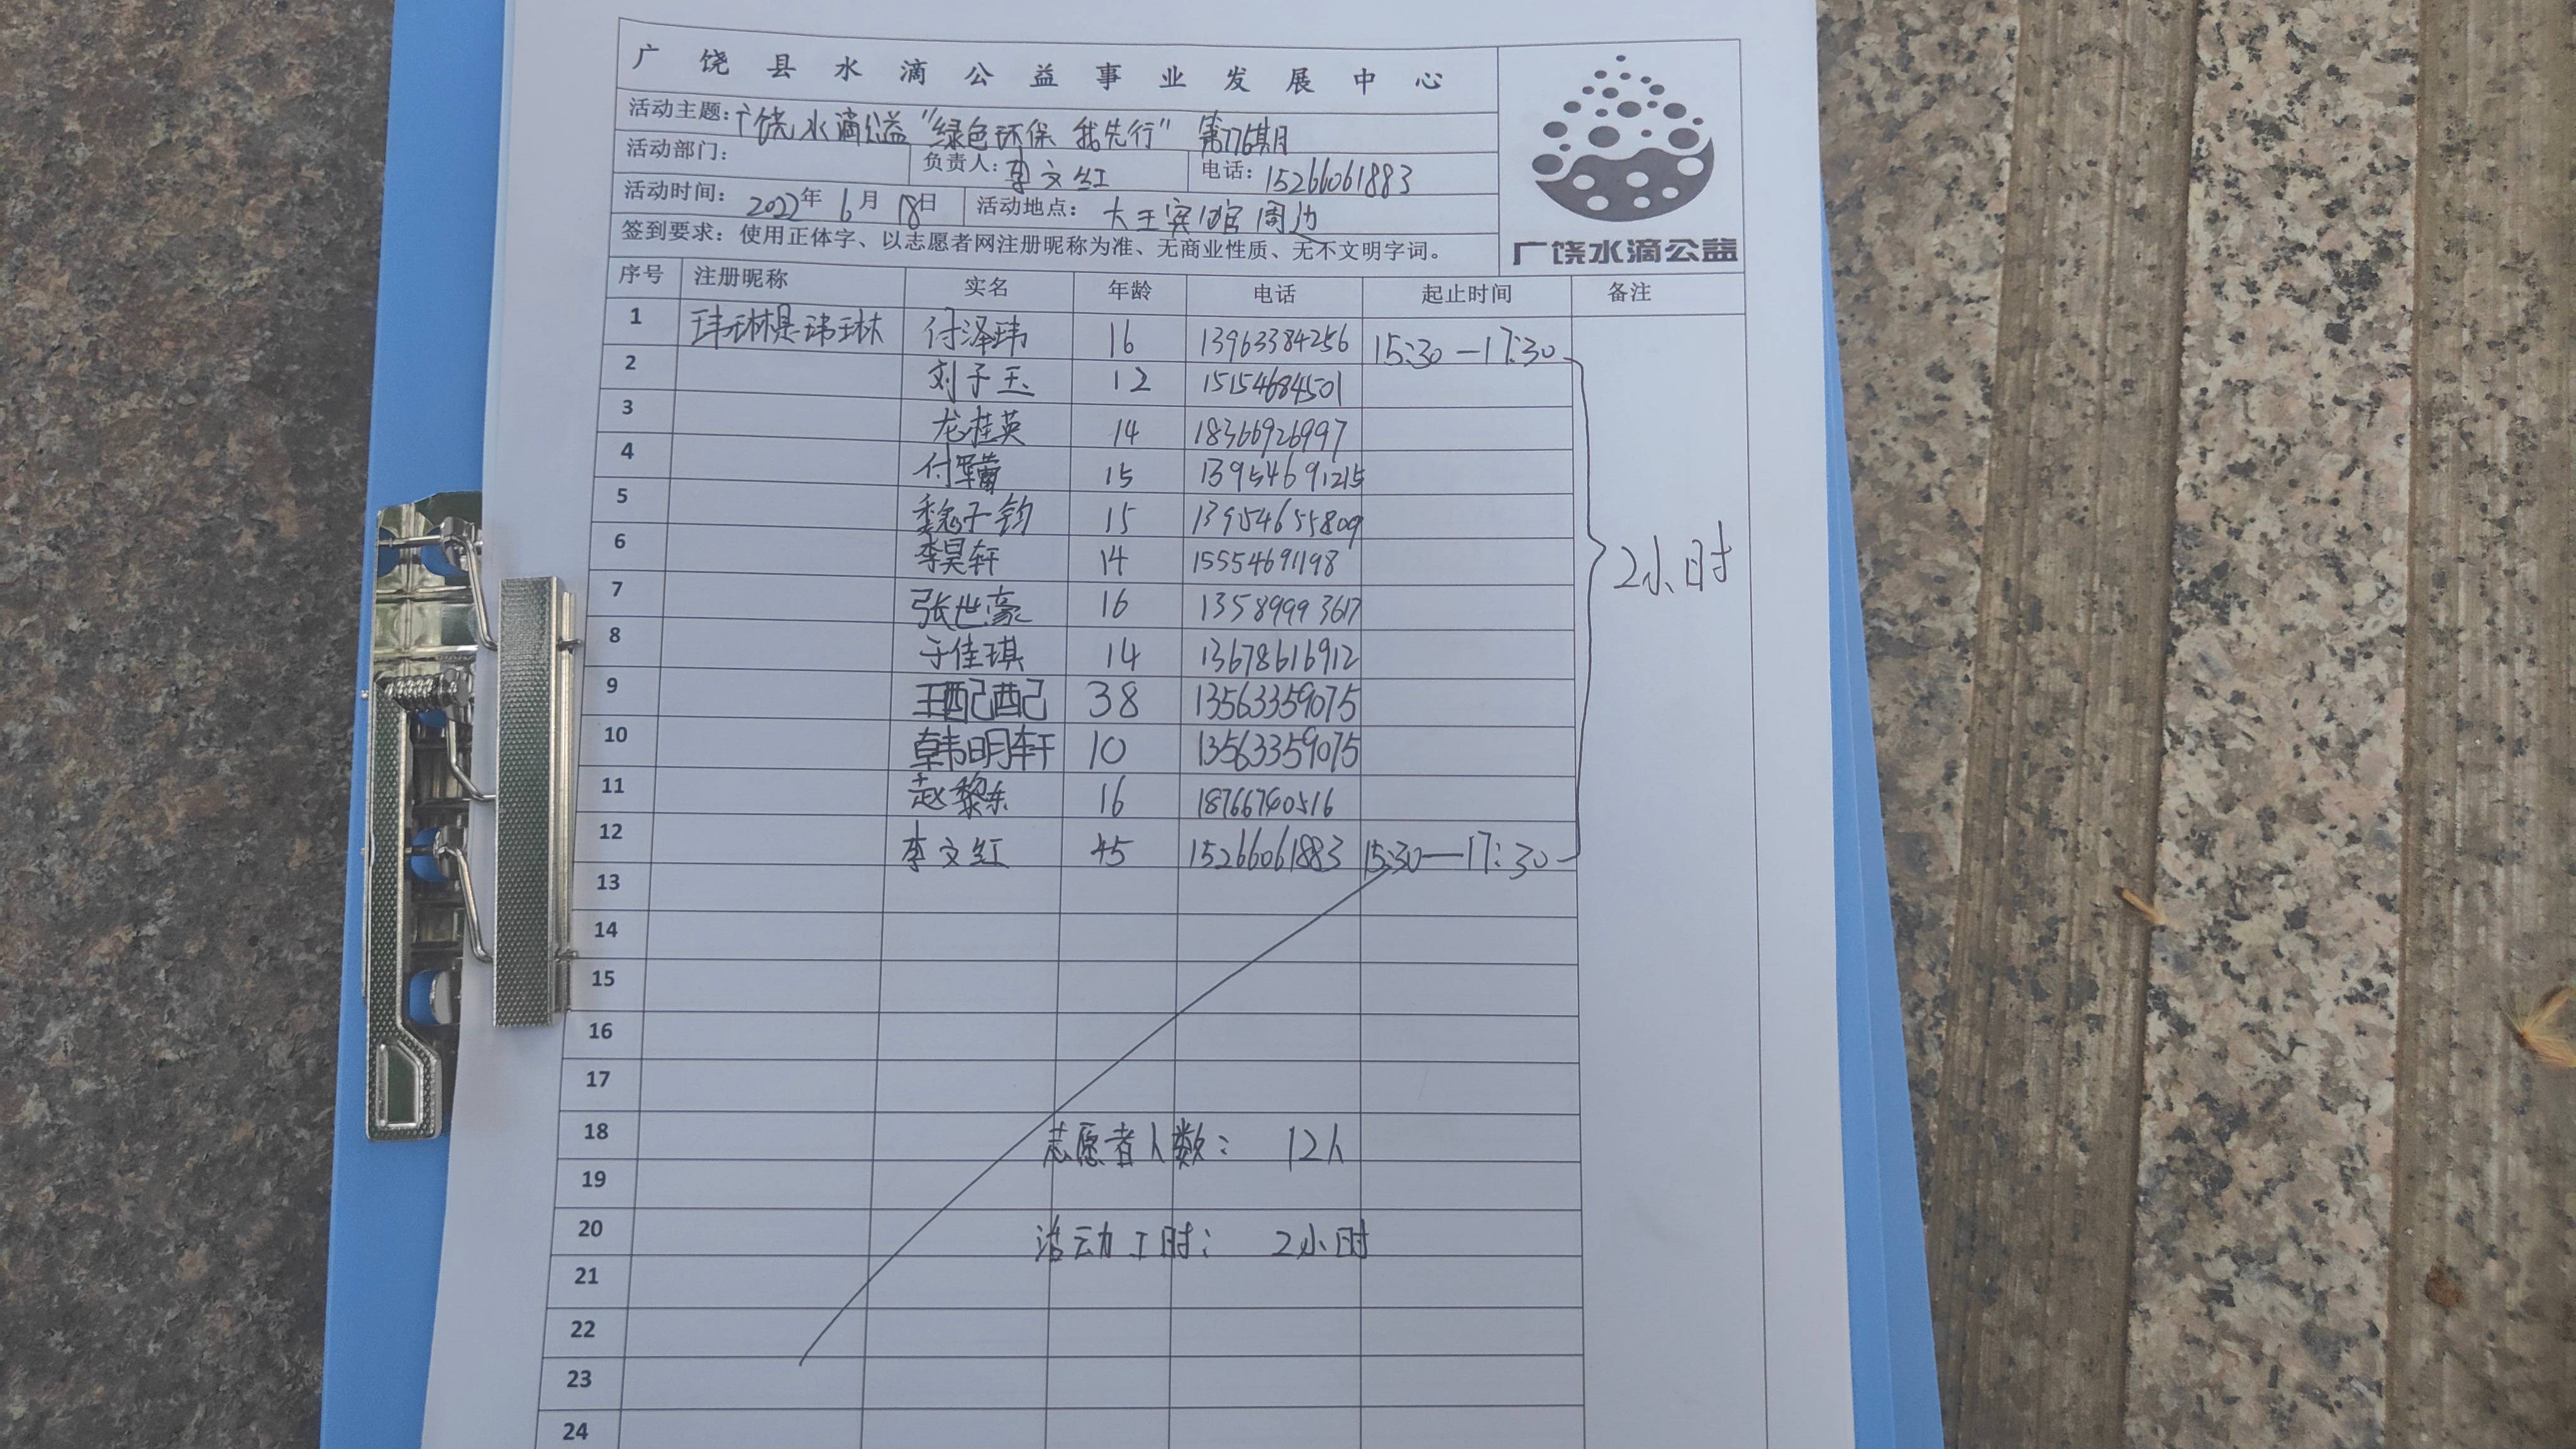 广饶县水滴公益事业发展中心
活动主题：广饶水滴公益“绿色环保 我先行” 第776期
活动部门： 负责人：李文红 电话：15266061883
活动时间：2022年6月18日 活动地点：大王宾馆周边
签到要求：使用正体字、以志愿者网注册昵称为准、无商业性质、无不文明字词。
广饶水滴公益
序号 注册昵称 实名 年龄 电话 起止时间 备注
1 付泽玮 16 13963384256 15:30—17:30
2 刘子玉 12 15154684501
3 龙桂英 14 18366926997
4 付 15 13954691215
5 魏子钧 15 13954655809
6 李昊轩 14 15554691198
7 张世豪 16 13589993617
8 于佳琪 14 13678616912
9 王配配 38 13563359075
10 韩明轩 10 13563359075
11 赵黎东 16 18766740516
12 李文红 45 15266061883 15:30—17:30
2小时
13
14
15
16
17
18 志愿者人数： 12人
19
20 活动工时： 2小时
21
22
23
24